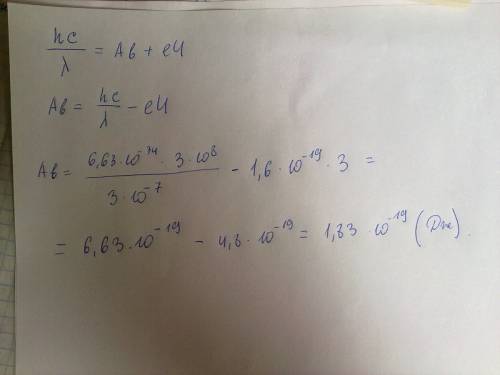 hc/λ = Aв + eU
Aв = hc/λ - eU
Aв = 6,63·10⁻³⁴ · 3·10⁸ / 3·10⁻⁷ - 1,6·10⁻¹⁹·3 =
= 6,63·10⁻¹⁹ - 4,8·10⁻¹⁹ = 1,83·10⁻¹⁹ (Дж).